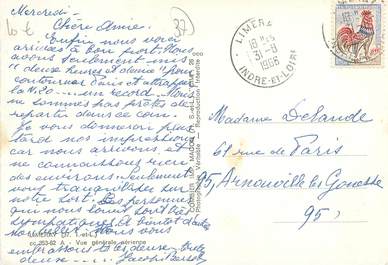 Mercredi
10 €
27
Chère Amie.
Enfin nous voici
arrivés à bon port. Nous
avons seulement mis
"deux heures et demie" pour
contourner Paris et attraper
la N.20... un record. Nous
ne sommes pas prêts de
repartir dans ce coin.
Je vous donnerai plus
tard nos impressions
car nous arrivons et
ne connaissons rien
des environs. Seulement
vous tranquilliser sur
notre sort. Les personnes
que nous louent sont très
sympathiques. A bientôt d'autres
nouvelles. Nous vous
embrassons toutes deux.
18 H
31-8
1966
INDRE-ET-LOIRE
Madame Delaude
61 rue de Paris
95, Arnouville les Gonesse
95)
Reproduction interdite
cc. 253-62 A - Vue générale aérienne